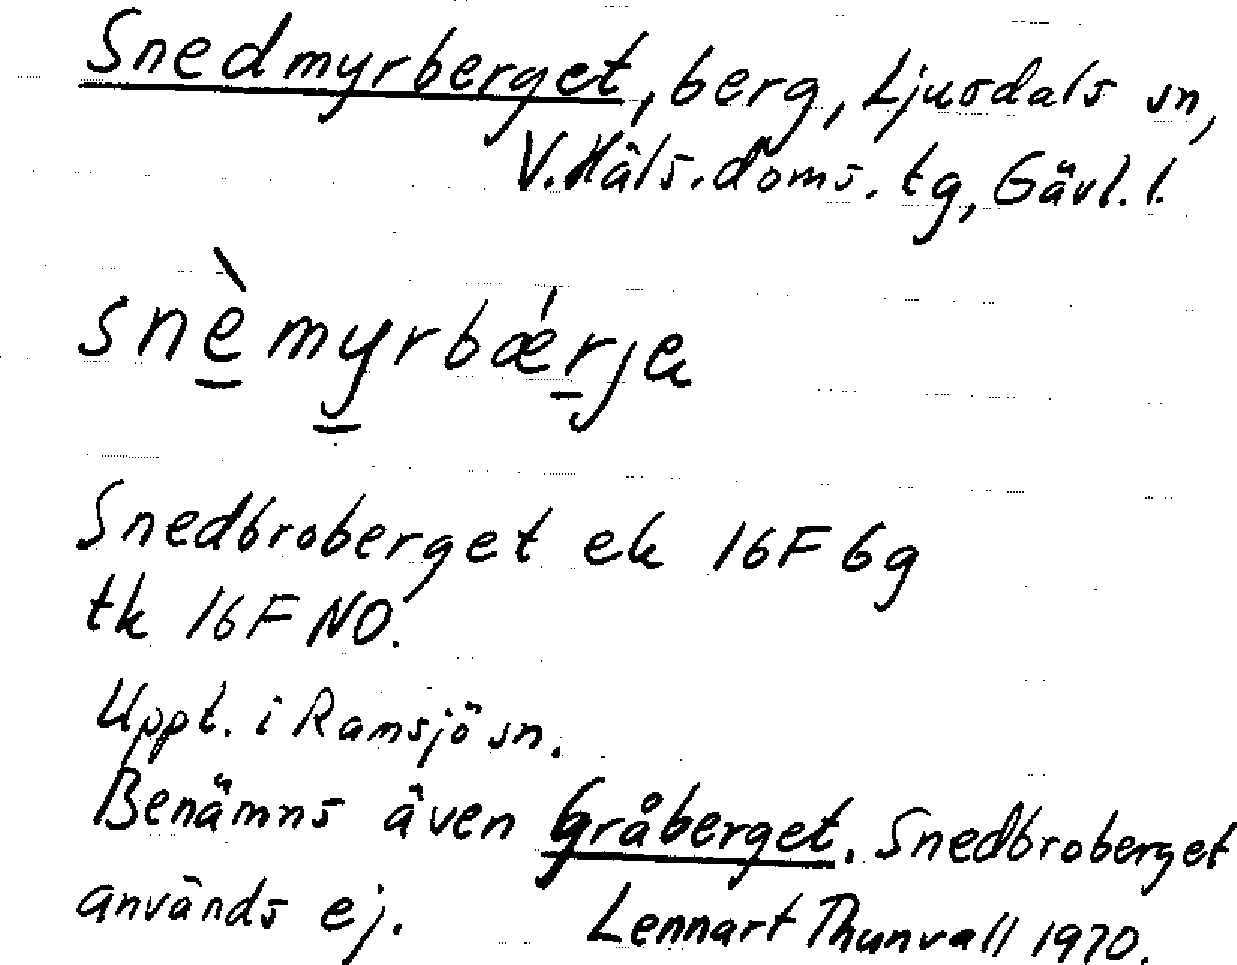 Snedmyrberget, berg, Ljusdals sn,
V. Häls. doms. tg, Gävl. l.
snèmyrbǽrjа
Snedbroberget ek 16F 6g
tk 16F NO.
Uppt. i Ramsjö sn.
Benämns även Gråberget. Snedbroberget
används ej. Lennart Thunvall 1970.